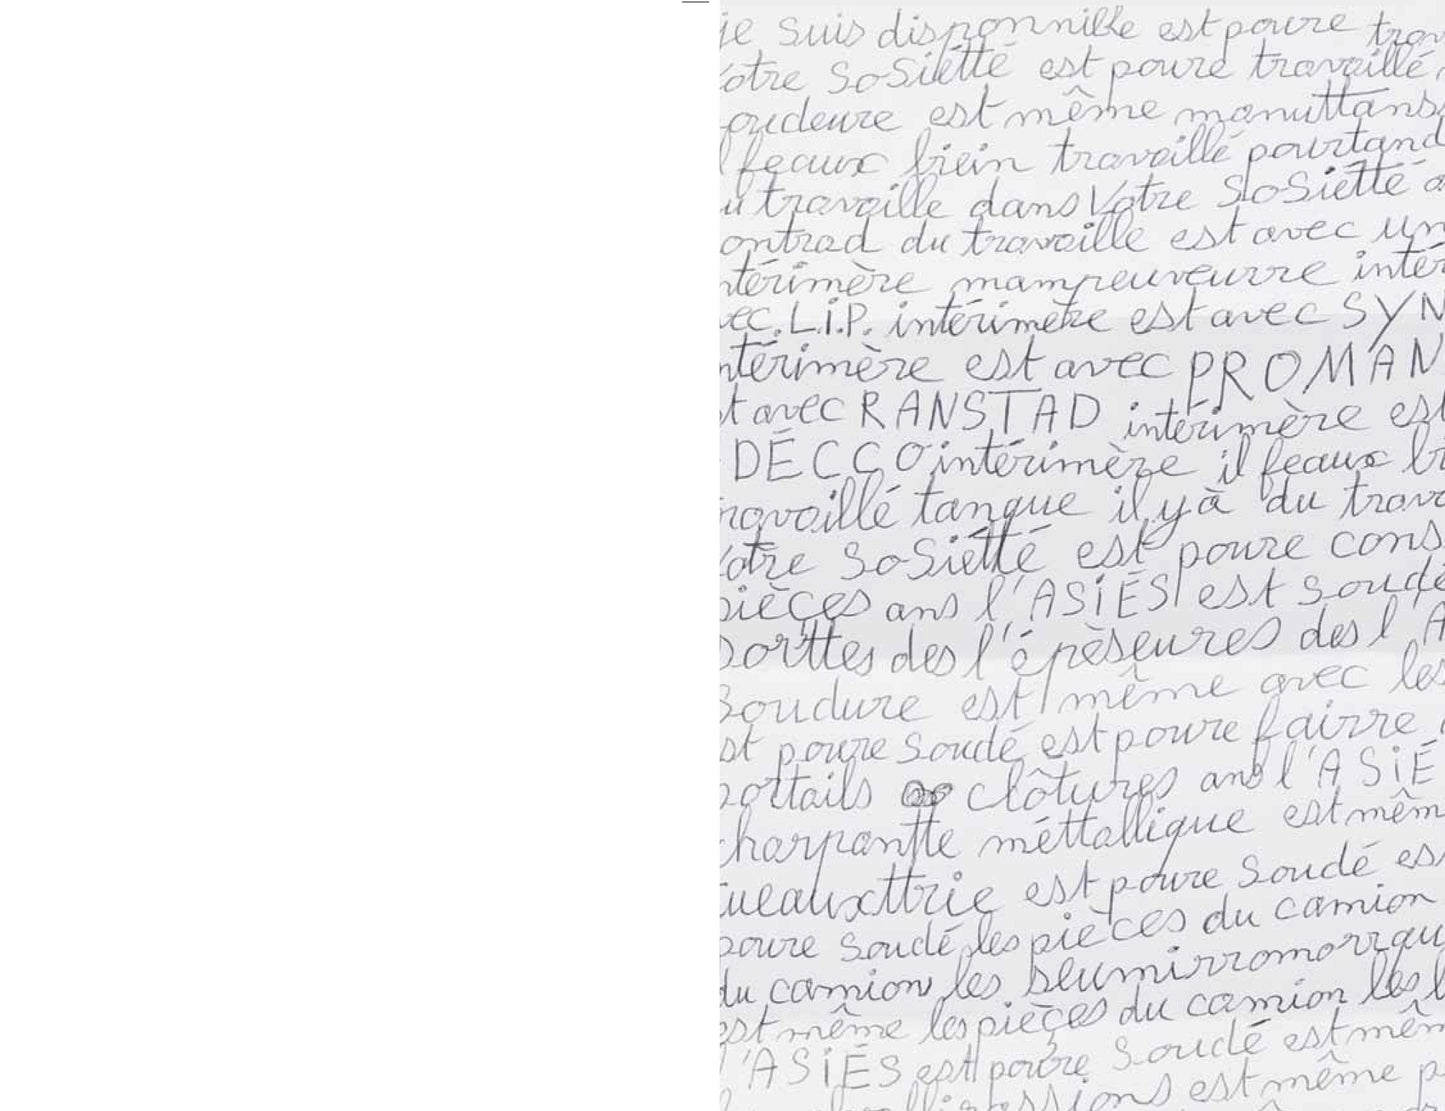 je suis disponnible est poure trav
otre SoSiétté est poure travaillé
oudeure est même manuttans
feaux biein travaillé pourtand
u travaille dans Votre SoSiétté a
ontrad du travaille est avec un
ntérimère mampreuveurre intér
vec L.i.P. intérimère est avec SYN
ntérimère est avec PROMAN
t avec RANSTAD intérimère est
DÉCCO intérimère il feaux bi
ravaillé tanque il y à du trava
otre SoSiétté est poure cons
pièçes ans l'ASiÉS est soudé
porttes des l'épèseures des l'A
Soudure est même avec les
st poure soudé est poure fairre
porttails clôtures ans l'ASiÉ
charpantte méttallique est mêm
tueauxttrie est poure soudé es
poure soudé les pièces du camion
du camion les seumirromorrqu
est même les pièçes du camion les l
l'ASiÉS est poure Soudé est mêm
ssions est même p